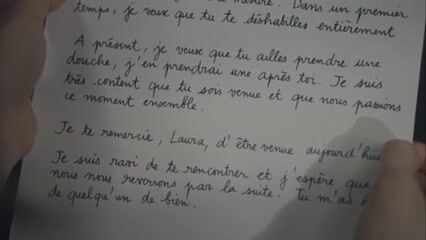 mesure. Dans un premier
temps, je veux que tu te déshabilles entièrement
A présent, je veux que tu ailles prendre une
douche, j'en prendrai une après toi. Je suis
très content que tu sois venue et que nous passions
ce moment ensemble.
Je te remercie, Laura, d'être venue aujourd'hui
Je suis ravi de te rencontrer et j'espère que
nous nous reverrons par la suite. Tu m'as
de quelqu'un de bien.